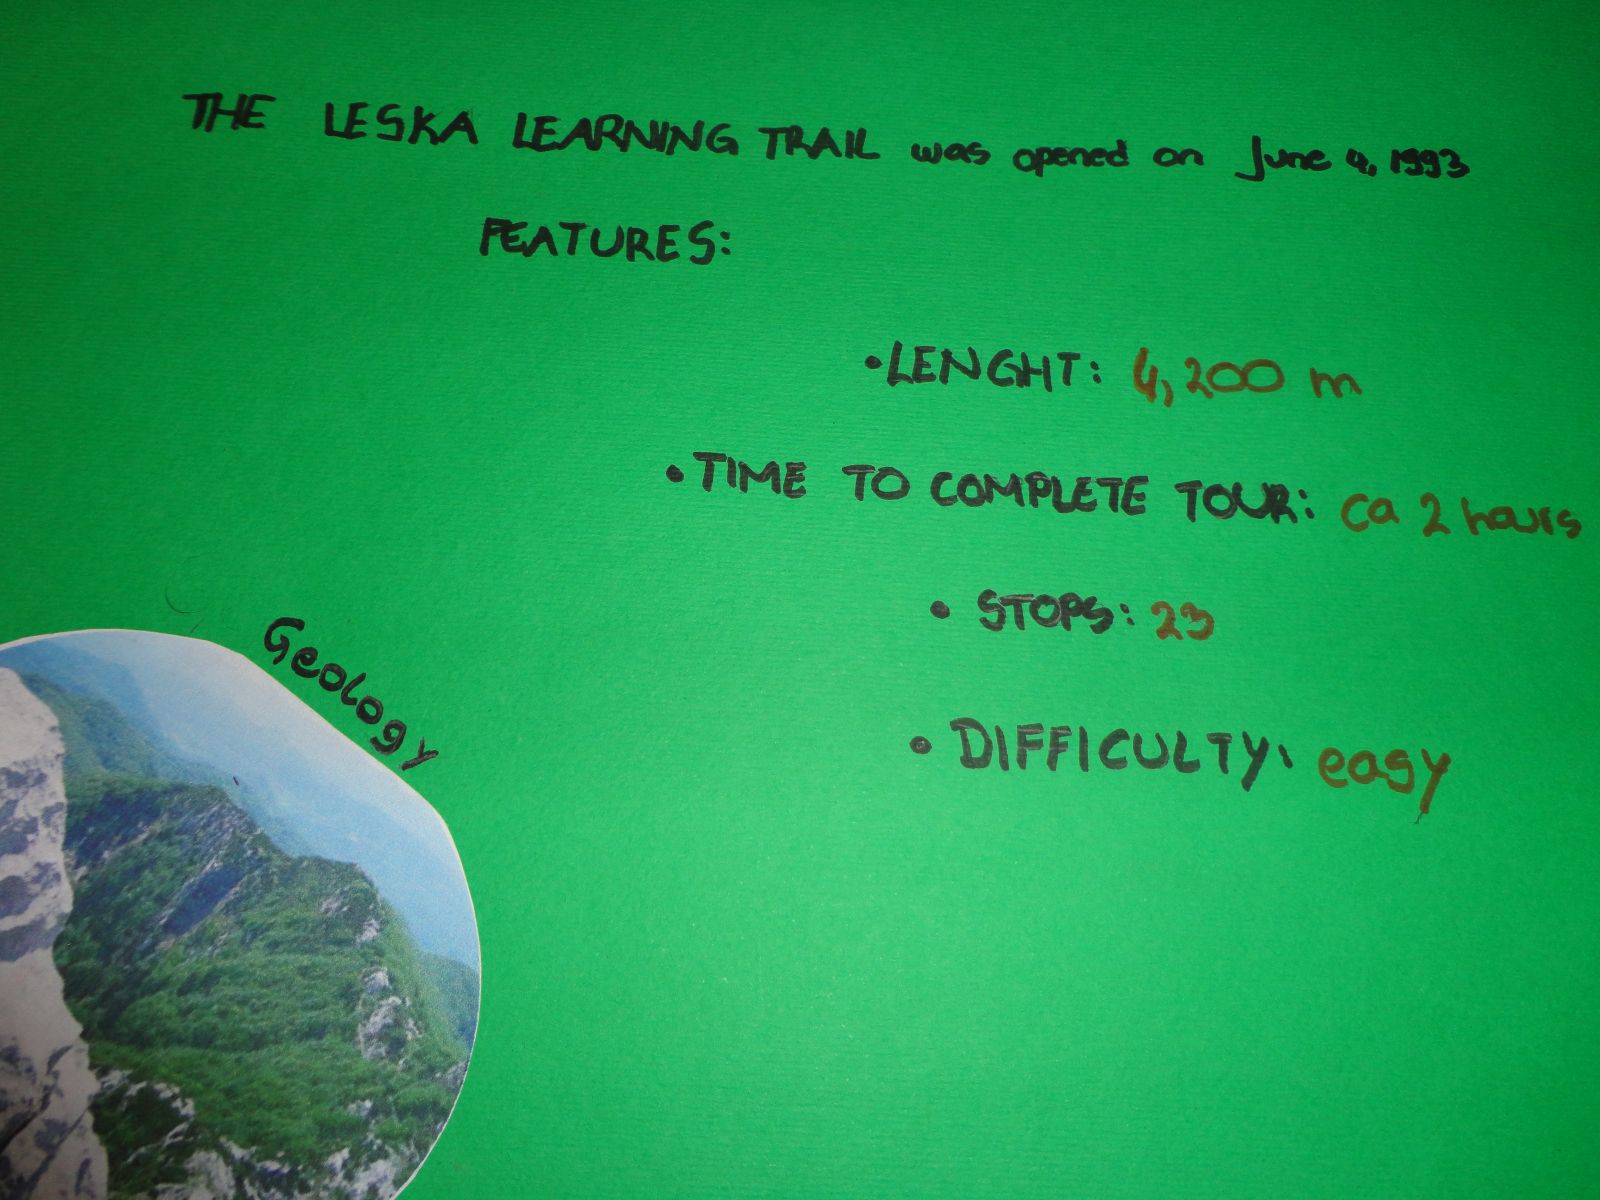 THE LESKA LEARNING TRAIL was opened on June 4, 1993
FEATURES:
• LENGHT: 4,200 m
• TIME TO COMPLETE TOUR: ca 2 hours
• STOPS: 23
Geology
• DIFFICULTY: easy